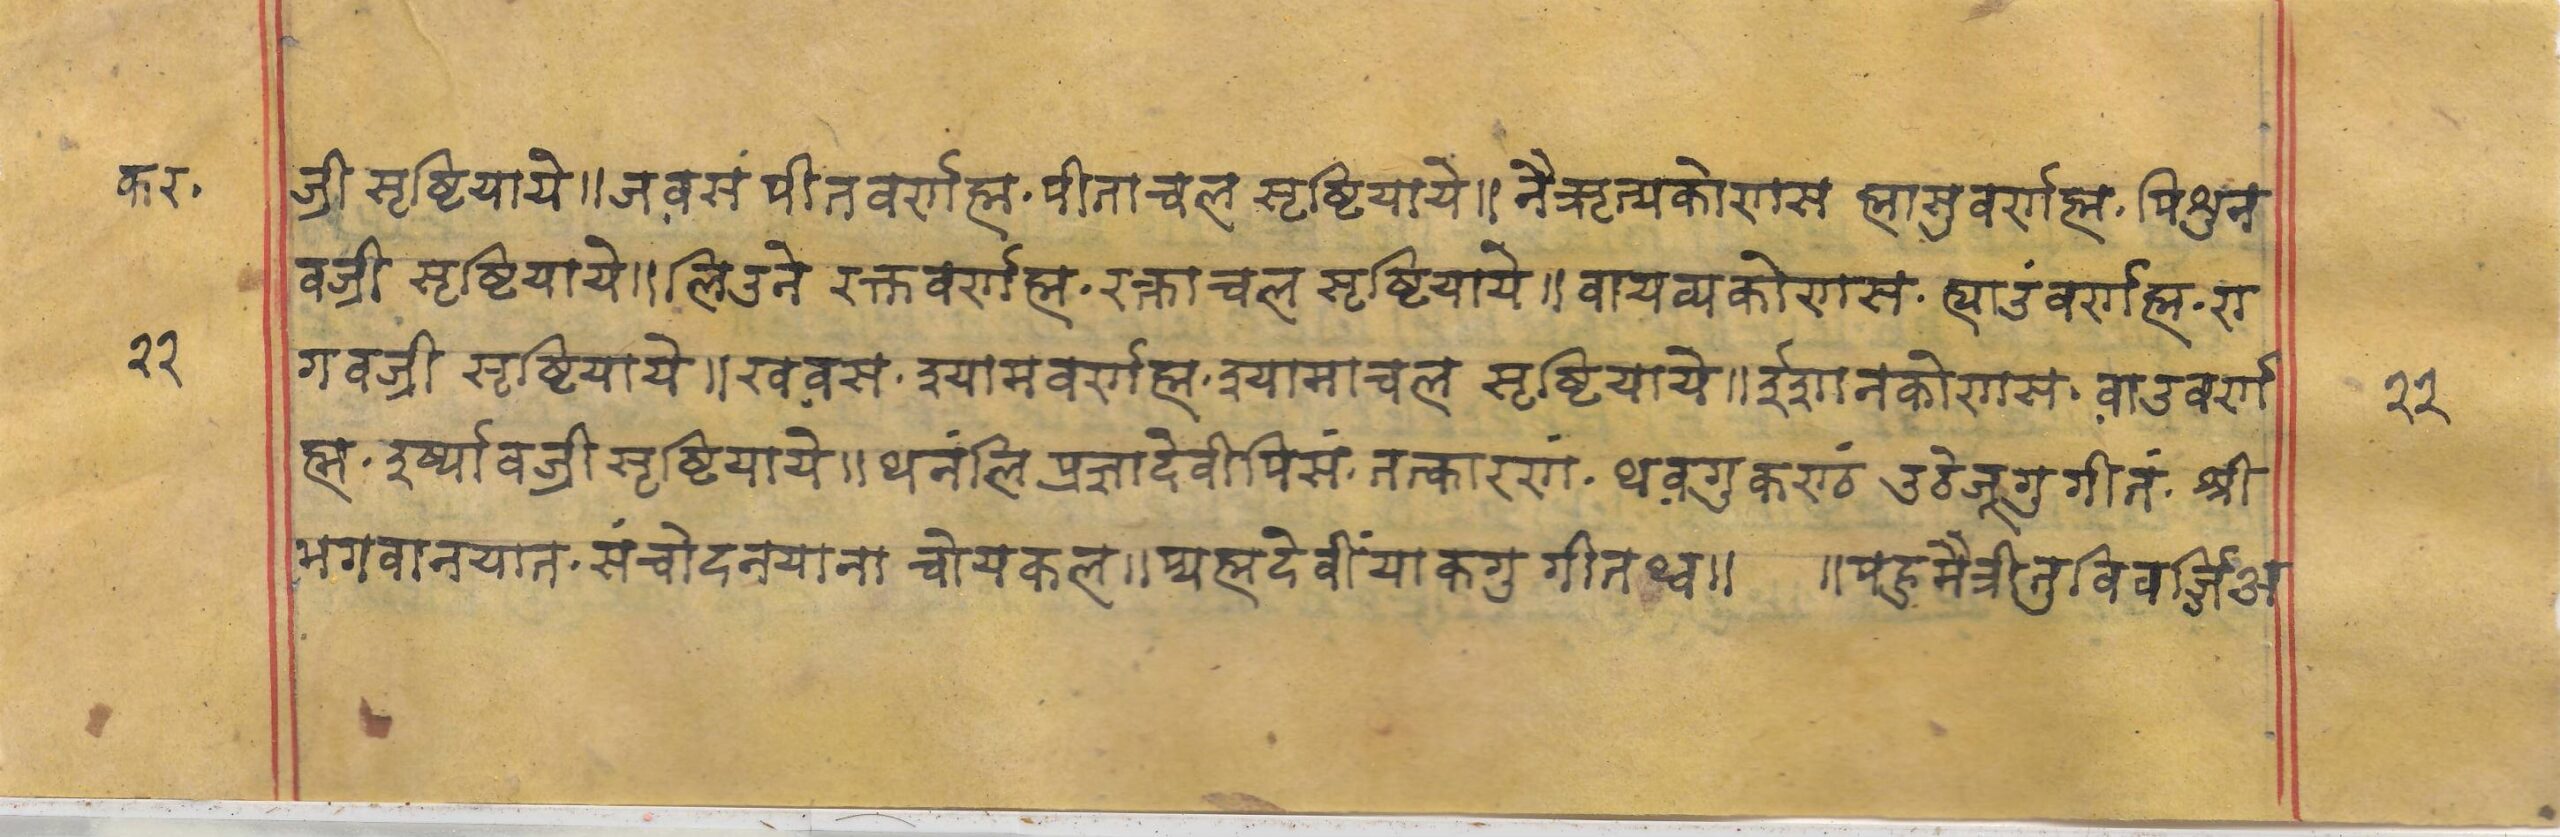 कर. ज्री सृष्टियाये॥जव़सं पीतवर्णह्म.पीताचल सृष्टियाये॥ नैऋत्यकोणस ह्मासुवर्णह्म. पिशुन
वज्री सृष्टियाये॥ लिउने रक्तवर्णह्म.रक्ताचल सृष्टियाये॥वायव्यकोणस. ह्याउंवर्णह्म.रा
२२ गवज्री सृष्टियाये॥खव़स.श्यामवर्णह्म.श्यामाचल सृष्टियाये॥ईशानकोणस. व़ाउवर्ण २२
ह्म.इर्ष्यावज्री सृष्टियाये॥थनंलि प्रज्ञादेवीपिसं.तत्कारणं. थव़गु कण्ठं उठेजूगु गीतं. श्री
भगवानयात.संचोदनयाना चोयकल॥प्यह्मदेवीयाकगु गीतथ्व॥ ॥पहुमैत्रीतुविवर्ज्जिअ